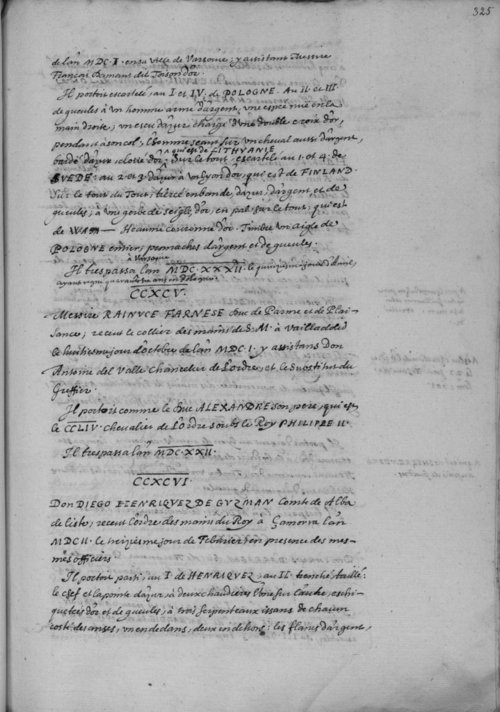 325
de l'an MDC.I. en sa ville de Varsovie, y assistant Messire
François Damant del Toison d'or.
Il portoit escartelé, au I et IV. de POLOGNE. Au II. et III.
de gueules à un homme armé d'argent, une espée nüe en la
main droite, un escu d'azur chargé d'une double croix d'or,
pendant à son col, l'homme seant sur un cheval aussi d'argent,
bardé d'azur cloüé d'or, qui est de LITHVANIE.
Sur le tout, escartelé au 1. et 4. de
SVEDE; au 2. et 3. d'azur à un lyon d'or, qui est de FINLAND.
Sur le tout du Tout, tiercé en bande, d'azur, d'argent, et de
gueules, à une gerbe de seigle, d'or, en pal, sur le tout, qui est
de WASA— Heaume couronné d'or. Timbre un aigle de
POLOGNE entier; pennaches d'argent et de gueules.
à Varsovie
Il trespassa l'an MDC.XXXII. le jour d'Avril,
CCXCV.
Messire RAINVCE FARNESE Duc de Parme et de Plai-
sance, receut le collier des mains de S. M. à Vailladolid
le huitiesme jour d'Octobre de l'an MDC.I. y assistans Don
Antoine del Valle Chancelier de l'ordre, et le substitut du
Greffier.
Il portoit comme le Duc ALEXANDRE son pere, qui est
le CCLIV. Chevalier de l'ordre soubs le Roy PHILIPPE II.
Il trespassa l'an MDC.XXII.
CCXCVI.
Don DIEGO HENRIQVEZ DE GVZMAN Comte de Alba
de Liste, receut l'ordre des mains du Roy à Gamorra l'an
MDCII. le treiziesme jour de Febvrier en presence des mes-
mes officiers.
Il portoit parti, au I. de HENRIQVEZ, au II. trenché, taillé:
le chef et la pointe d'azur, à deux chaudieres l'une sur l'autre, eschi-
quetées d'or et de gueules, à trois serpenteaux issans de chacun
costé des anses, un en dedans, deux en dehors; les flancs d'argent,